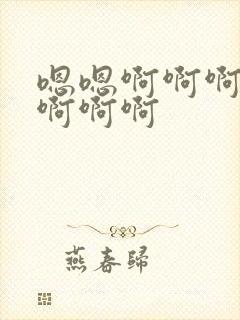 嗯嗯啊啊啊
啊啊啊
燕春归